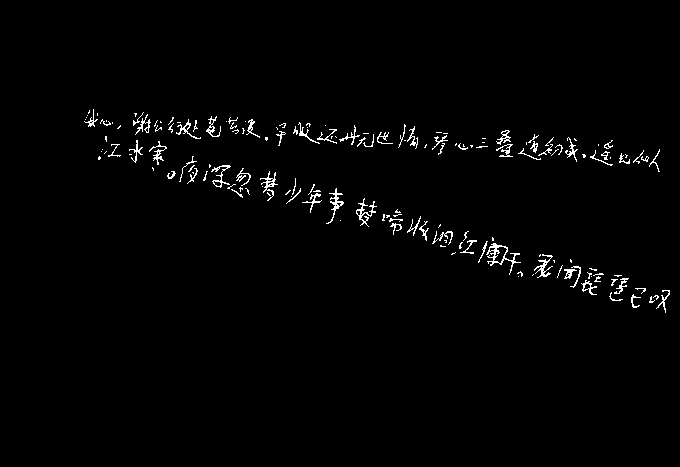 我心，谢公行处苍苔没。早服还丹无世情，琴心三叠道初成。遥见仙人
江水寒。夜深忽梦少年事，梦啼妆泪红阑干。我闻琵琶已叹